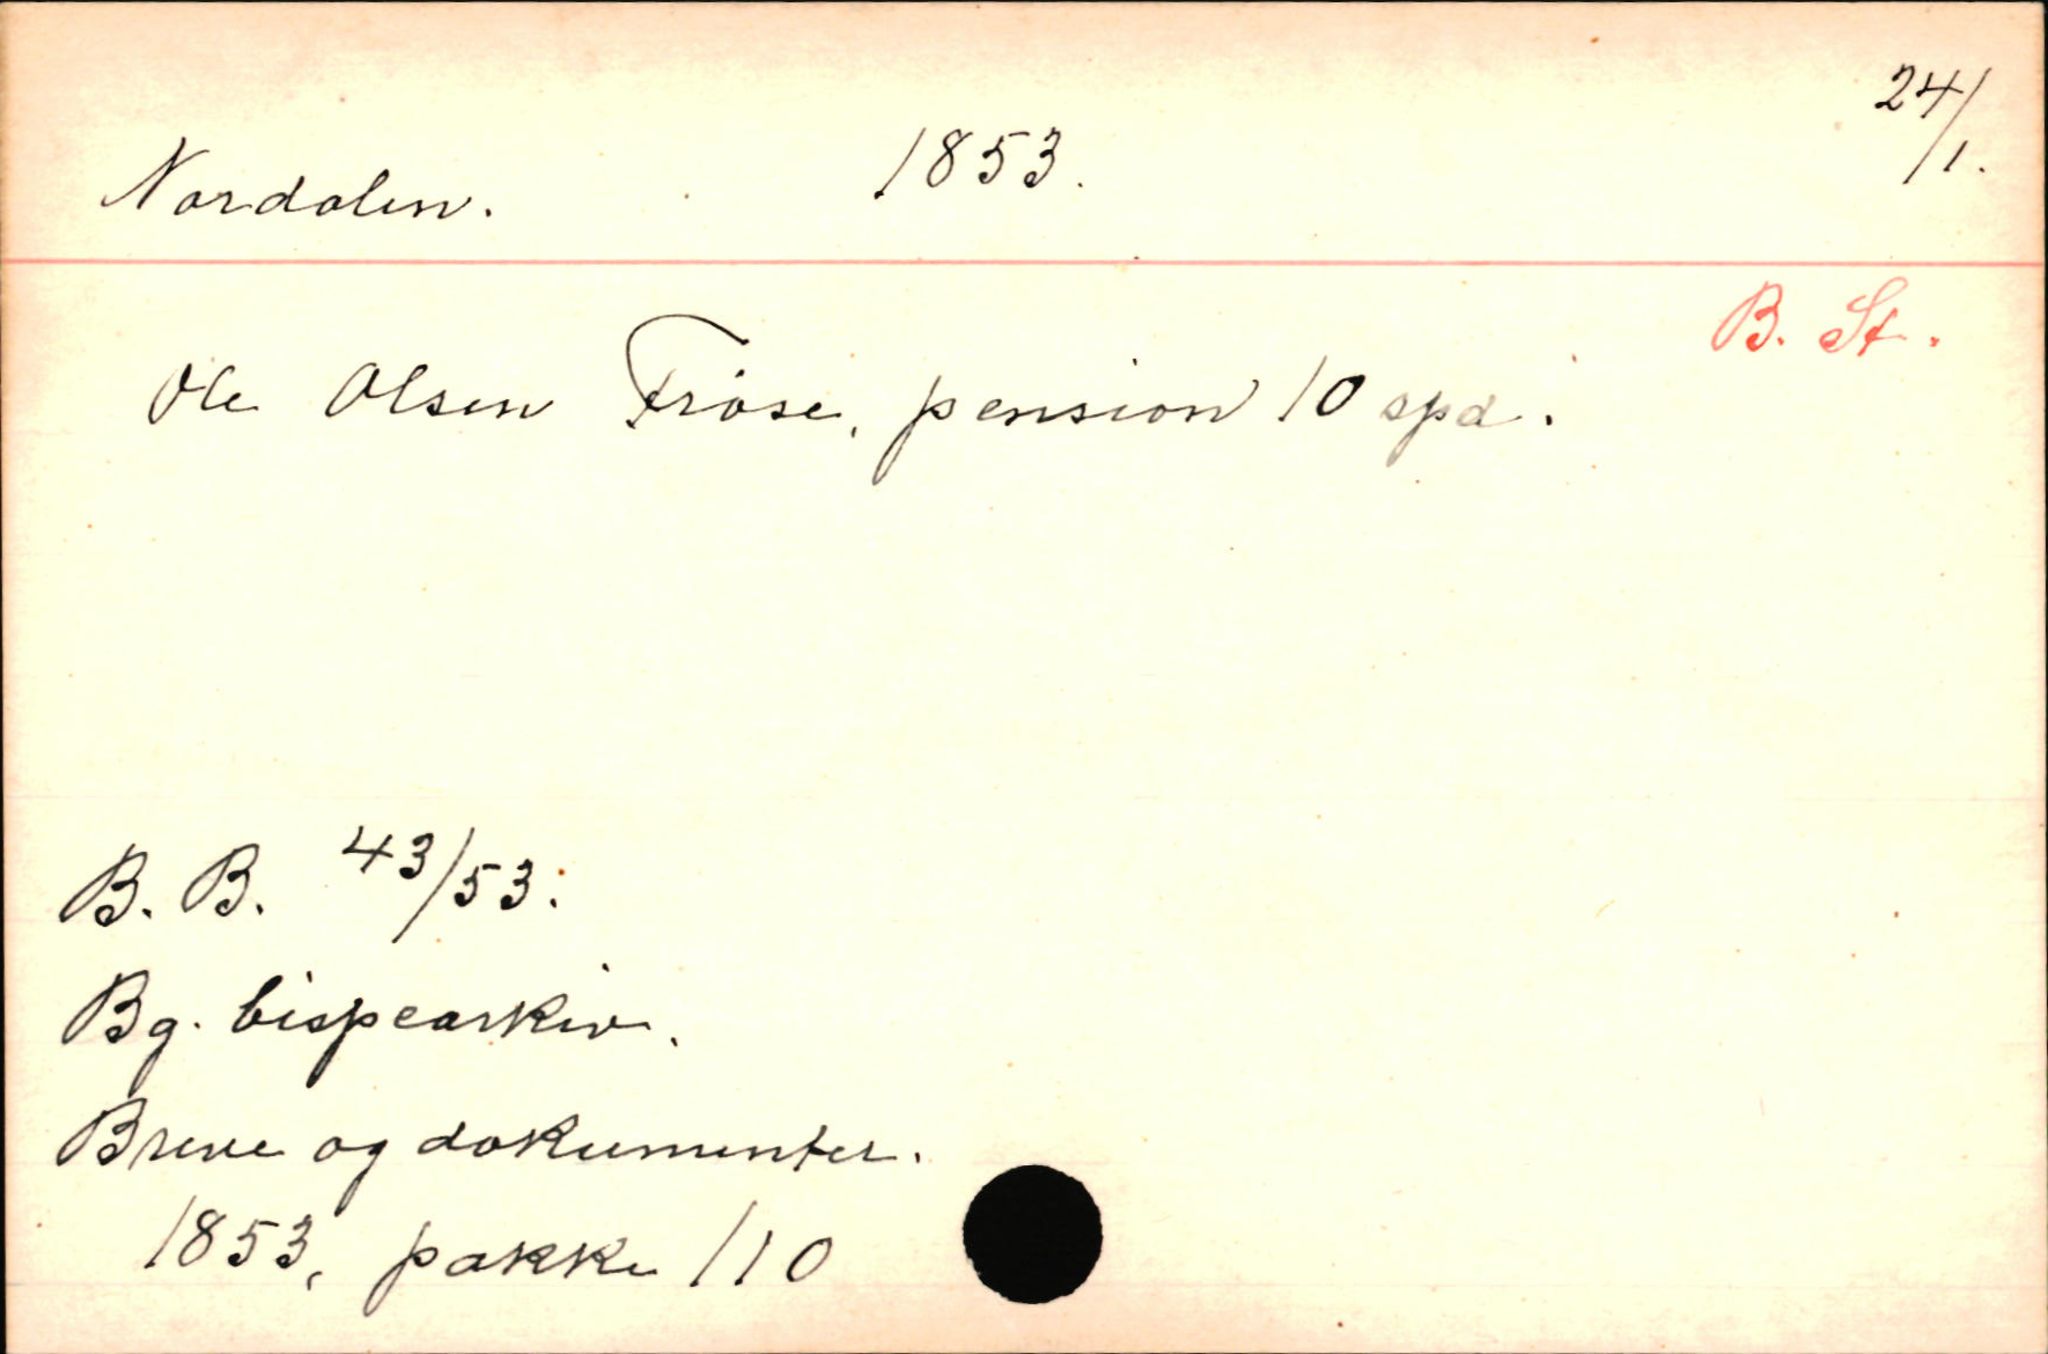 Nordalen. 1853. 24/1.
B. St.
Ole Olsen Frøse, pension 10 spd.
B. B. 43/53.
Bg. bispearkiv.
Breve og dokumenter.
1853, pakke 110